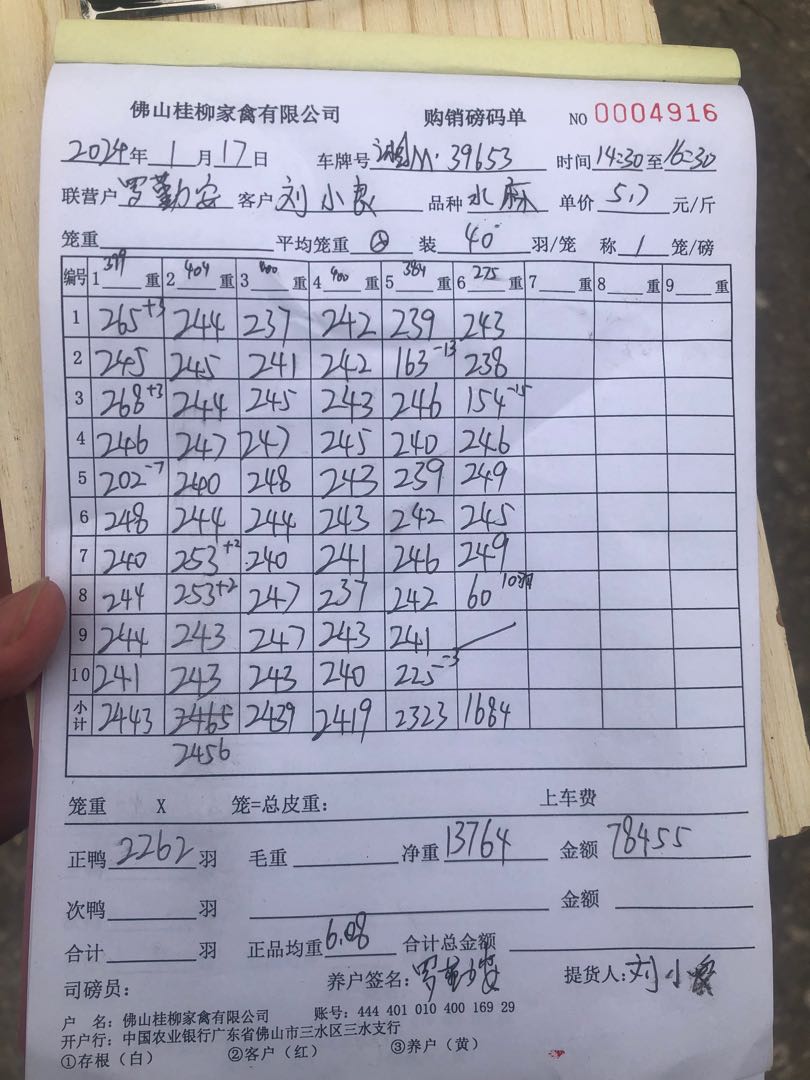 佛山桂柳家禽有限公司 购销磅码单 NO 0004916
2024年 1 月 17 日 车牌号 M·39653 时间 14:30 至 16:30
联营户 罗勤安 客户 刘小良 品种 水麻 单价 5.7 元/斤
笼重 平均笼重 装 40 羽/笼 称 1 笼/磅
编号 1 399 重 2 404 重 3 400 重 4 400 重 5 384 重 6 275 重 7 重 8 重 9 重
1 265+3 244 237 242 239 243
2 245 245 241 242 163-13 238
3 268+3 244 245 243 246 154-15
4 246 247 247 245 240 246
5 202-7 240 248 243 239 249
6 248 244 244 243 242 245
7 240 253+2 240 241 246 249
8 244 253+2 247 237 242 60 10
9 244 243 247 243 241
10 241 243 243 240 225-3
小计 2443 2465 2439 2419 2323 1684
2456
笼重 X 笼=总皮重: 上车费
正鸭 2262 羽 毛重 净重 13764 金额 78455
次鸭 羽 金额
合计 羽 正品均重 6.08 合计总金额
司磅员: 养户签名: 罗勤安 提货人: 刘小良
户 名: 佛山桂柳家禽有限公司 账号: 444 401 010 400 169 29
开户行: 中国农业银行广东省佛山市三水区三水支行
①存根(白) ②客户(红) ③养户(黄)